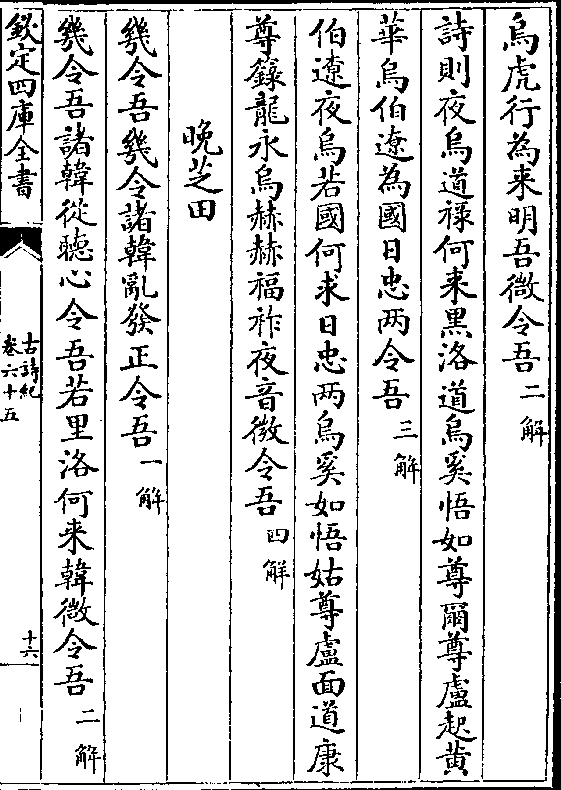 烏虎行為来明吾微令吾 二解
詩則夜烏道祿何来黒洛道烏奚悟如尊爾尊盧起黄
華烏伯遼為國日忠两令吾 三解
伯遼夜烏若國何求日忠两烏奚如悟姑尊盧面道康
尊錄龍永烏赫赫福祚夜音微令吾 四解
晚芝田
幾令吾幾令諸韓亂發正令吾 一解
幾令吾諸韓從聴心令吾若里洛何来韓微令吾 二解
欽定四庫全書
古詩紀
卷六十五
十六